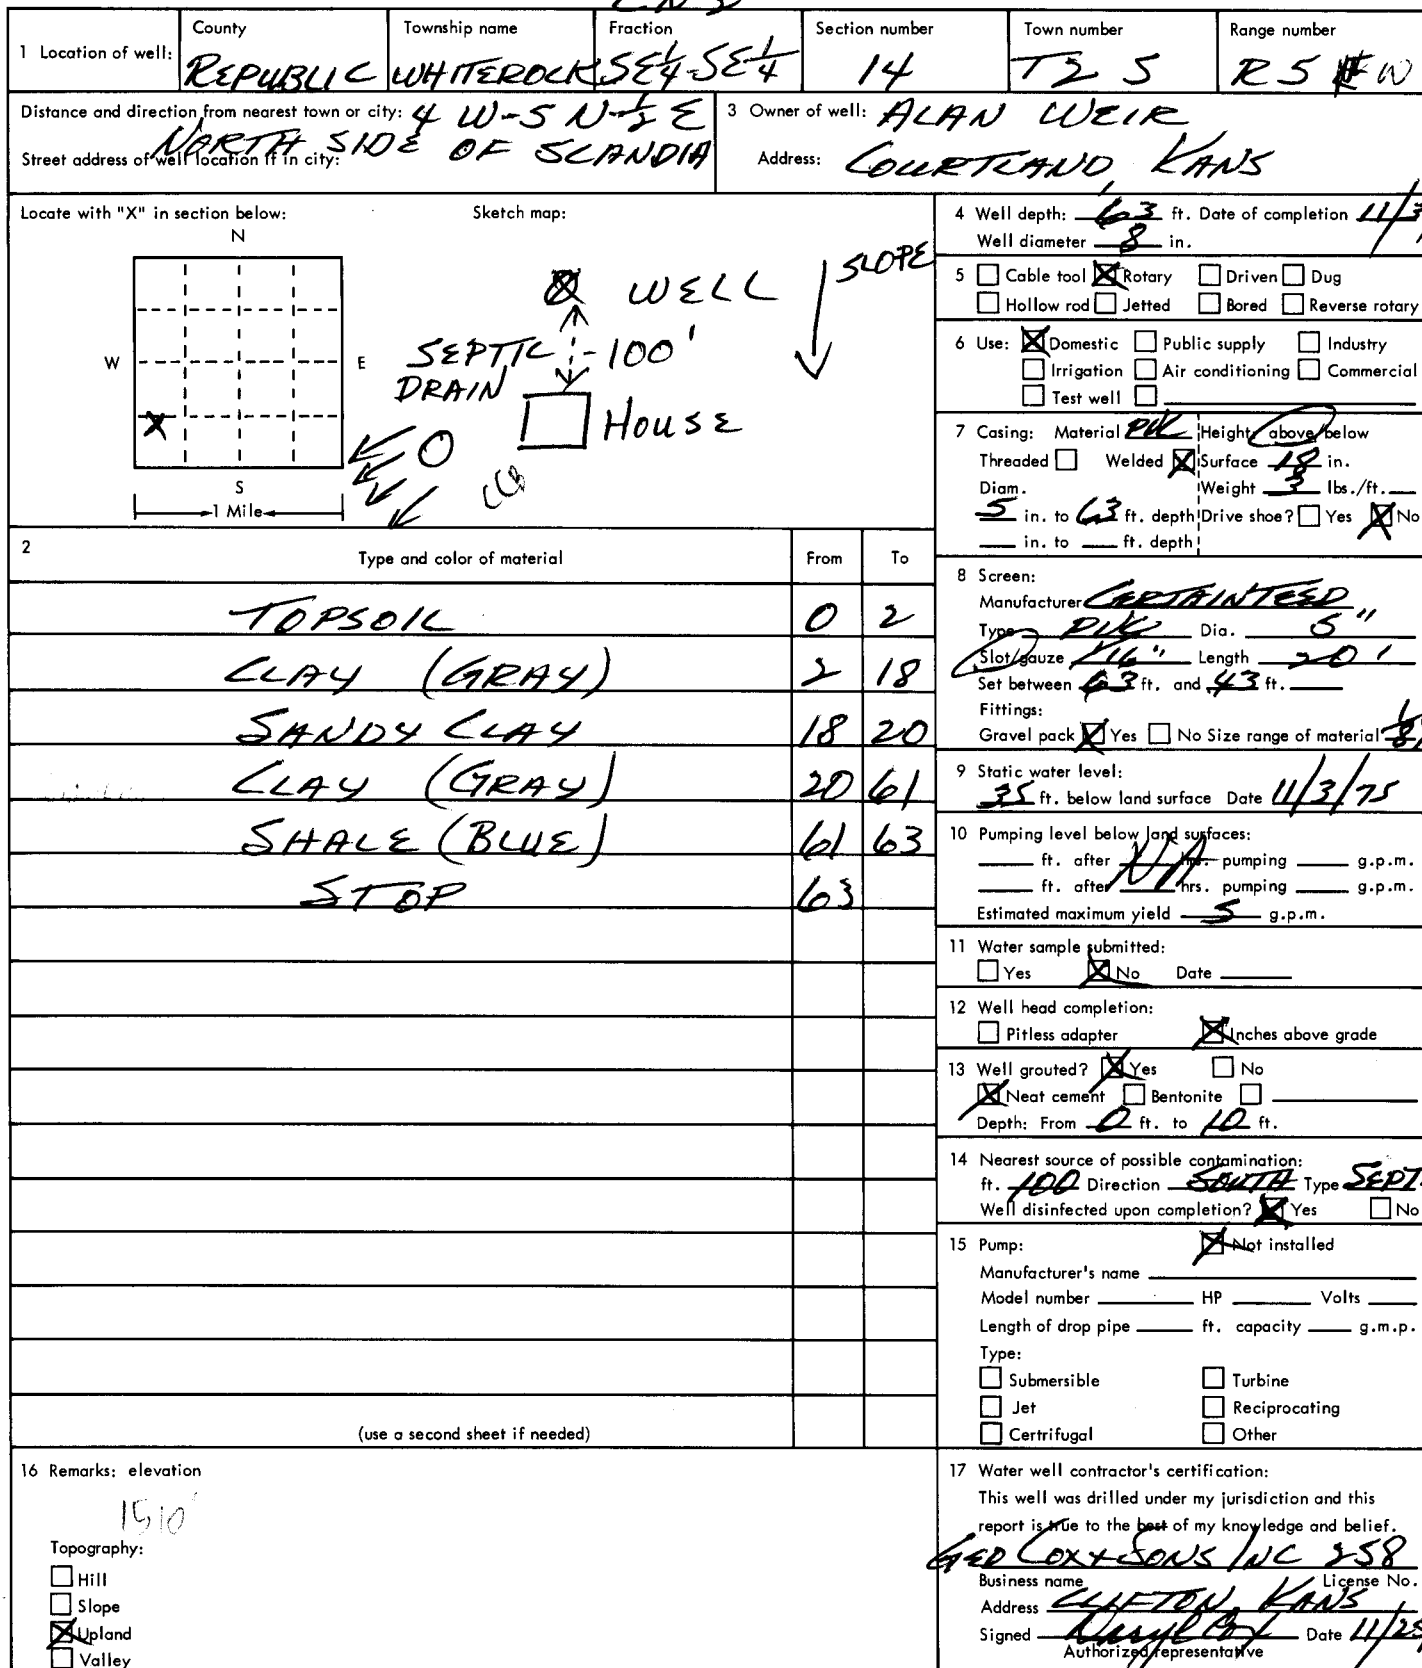 County Township name Fraction Section number Town number Range number
1 Location of well: REPUBLIC WHITEROCK SE 1/4 SE 1/4 14 T2 S R5 W
Distance and direction from nearest town or city: 4 W-5 N-1/2 E
NORTH SIDE OF SCANDIA
Street address of well location if in city:
3 Owner of well: ALAN WEIR
Address: COURTLAND, KANS
Locate with "X" in section below: Sketch map:
N
W E
S
1 Mile
X
WELL
SLOPE
SEPTIC 100'
DRAIN
HOUSE
2 Type and color of material From To
TOPSOIL 0 2
CLAY (GRAY) 2 18
SANDY CLAY 18 20
CLAY (GRAY) 20 61
SHALE (BLUE) 61 63
STOP 63
(use a second sheet if needed)
4 Well depth: 63 ft. Date of completion 11/3
Well diameter 8 in.
5 Cable tool Rotary Driven Dug
Hollow rod Jetted Bored Reverse rotary
6 Use: Domestic Public supply Industry
Irrigation Air conditioning Commercial
Test well
7 Casing: Material PVC Height: above/below
Threaded Welded Surface 18 in.
Diam. Weight 3 lbs./ft.
5 in. to 63 ft. depth Drive shoe? Yes No
in. to ft. depth
8 Screen:
Manufacturer CERTAINTEED
Type PVC Dia. 5"
Slot/gauze 1/16" Length 20'
Set between 63 ft. and 43 ft.
Fittings:
Gravel pack Yes No Size range of material 1/8
9 Static water level:
35 ft. below land surface Date 11/3/75
10 Pumping level below land surfaces:
ft. after NA hrs. pumping g.p.m.
ft. after hrs. pumping g.p.m.
Estimated maximum yield 5 g.p.m.
11 Water sample submitted:
Yes No Date
12 Well head completion:
Pitless adapter Inches above grade
13 Well grouted? Yes No
Neat cement Bentonite
Depth: From 0 ft. to 10 ft.
14 Nearest source of possible contamination:
ft. 100 Direction SOUTH Type SEPT.
Well disinfected upon completion? Yes No
15 Pump: Not installed
Manufacturer's name
Model number HP Volts
Length of drop pipe ft. capacity g.m.p.
Type:
Submersible Turbine
Jet Reciprocating
Certrifugal Other
16 Remarks: elevation
1510'
Topography:
Hill
Slope
Upland
Valley
17 Water well contractor's certification:
This well was drilled under my jurisdiction and this
report is true to the best of my knowledge and belief.
GEO COX + SONS INC 258
Business name License No.
Address CLIFTON, KANS
Signed Daryl Cox Date 11/25
Authorized representative